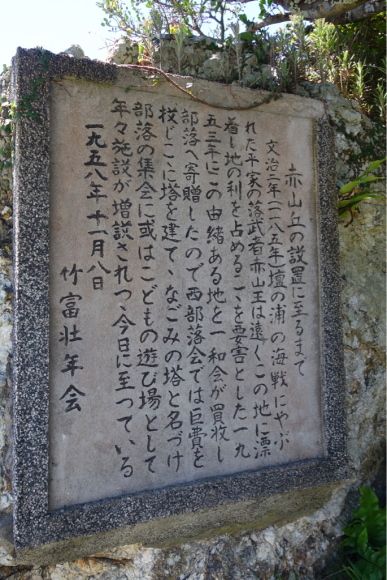 赤山丘の設置に至るまで
文治二年(一一八五年)壇の浦の海戦にやぶ
れた平家の落武者赤山王は遠くこの地に漂
着し地の利を占めるこゝを要害とした一九
五三年にこの由緒ある地を一和会が買收し
部落へ寄贈したので西部落会では巨費を
投じこゝに塔を建て、なごみの塔と名づけ
部落の集会に或はこどもの遊び場として
年々施設が増設されつゝ今日に至っている
一九五八年十一月八日
竹富壮年会